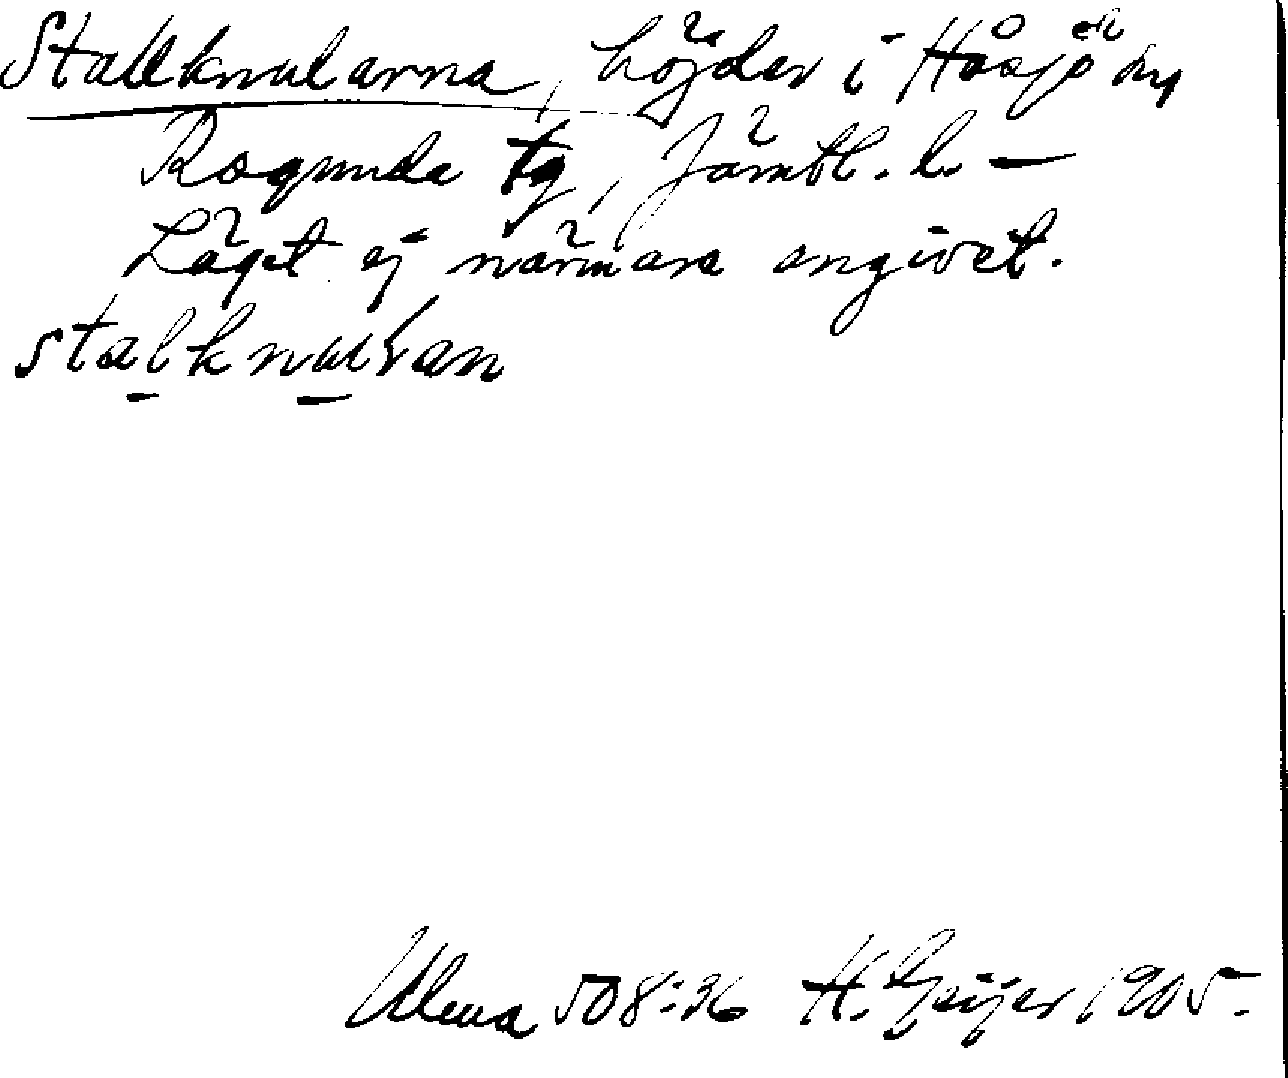 Stallknularna, höjder i Håsjö sn,
Ragunda tg, Jämtl. l. —
Läget ej närmare angivet.
stalknulʹan
Ulma 508:36 H. Geijer 1905.